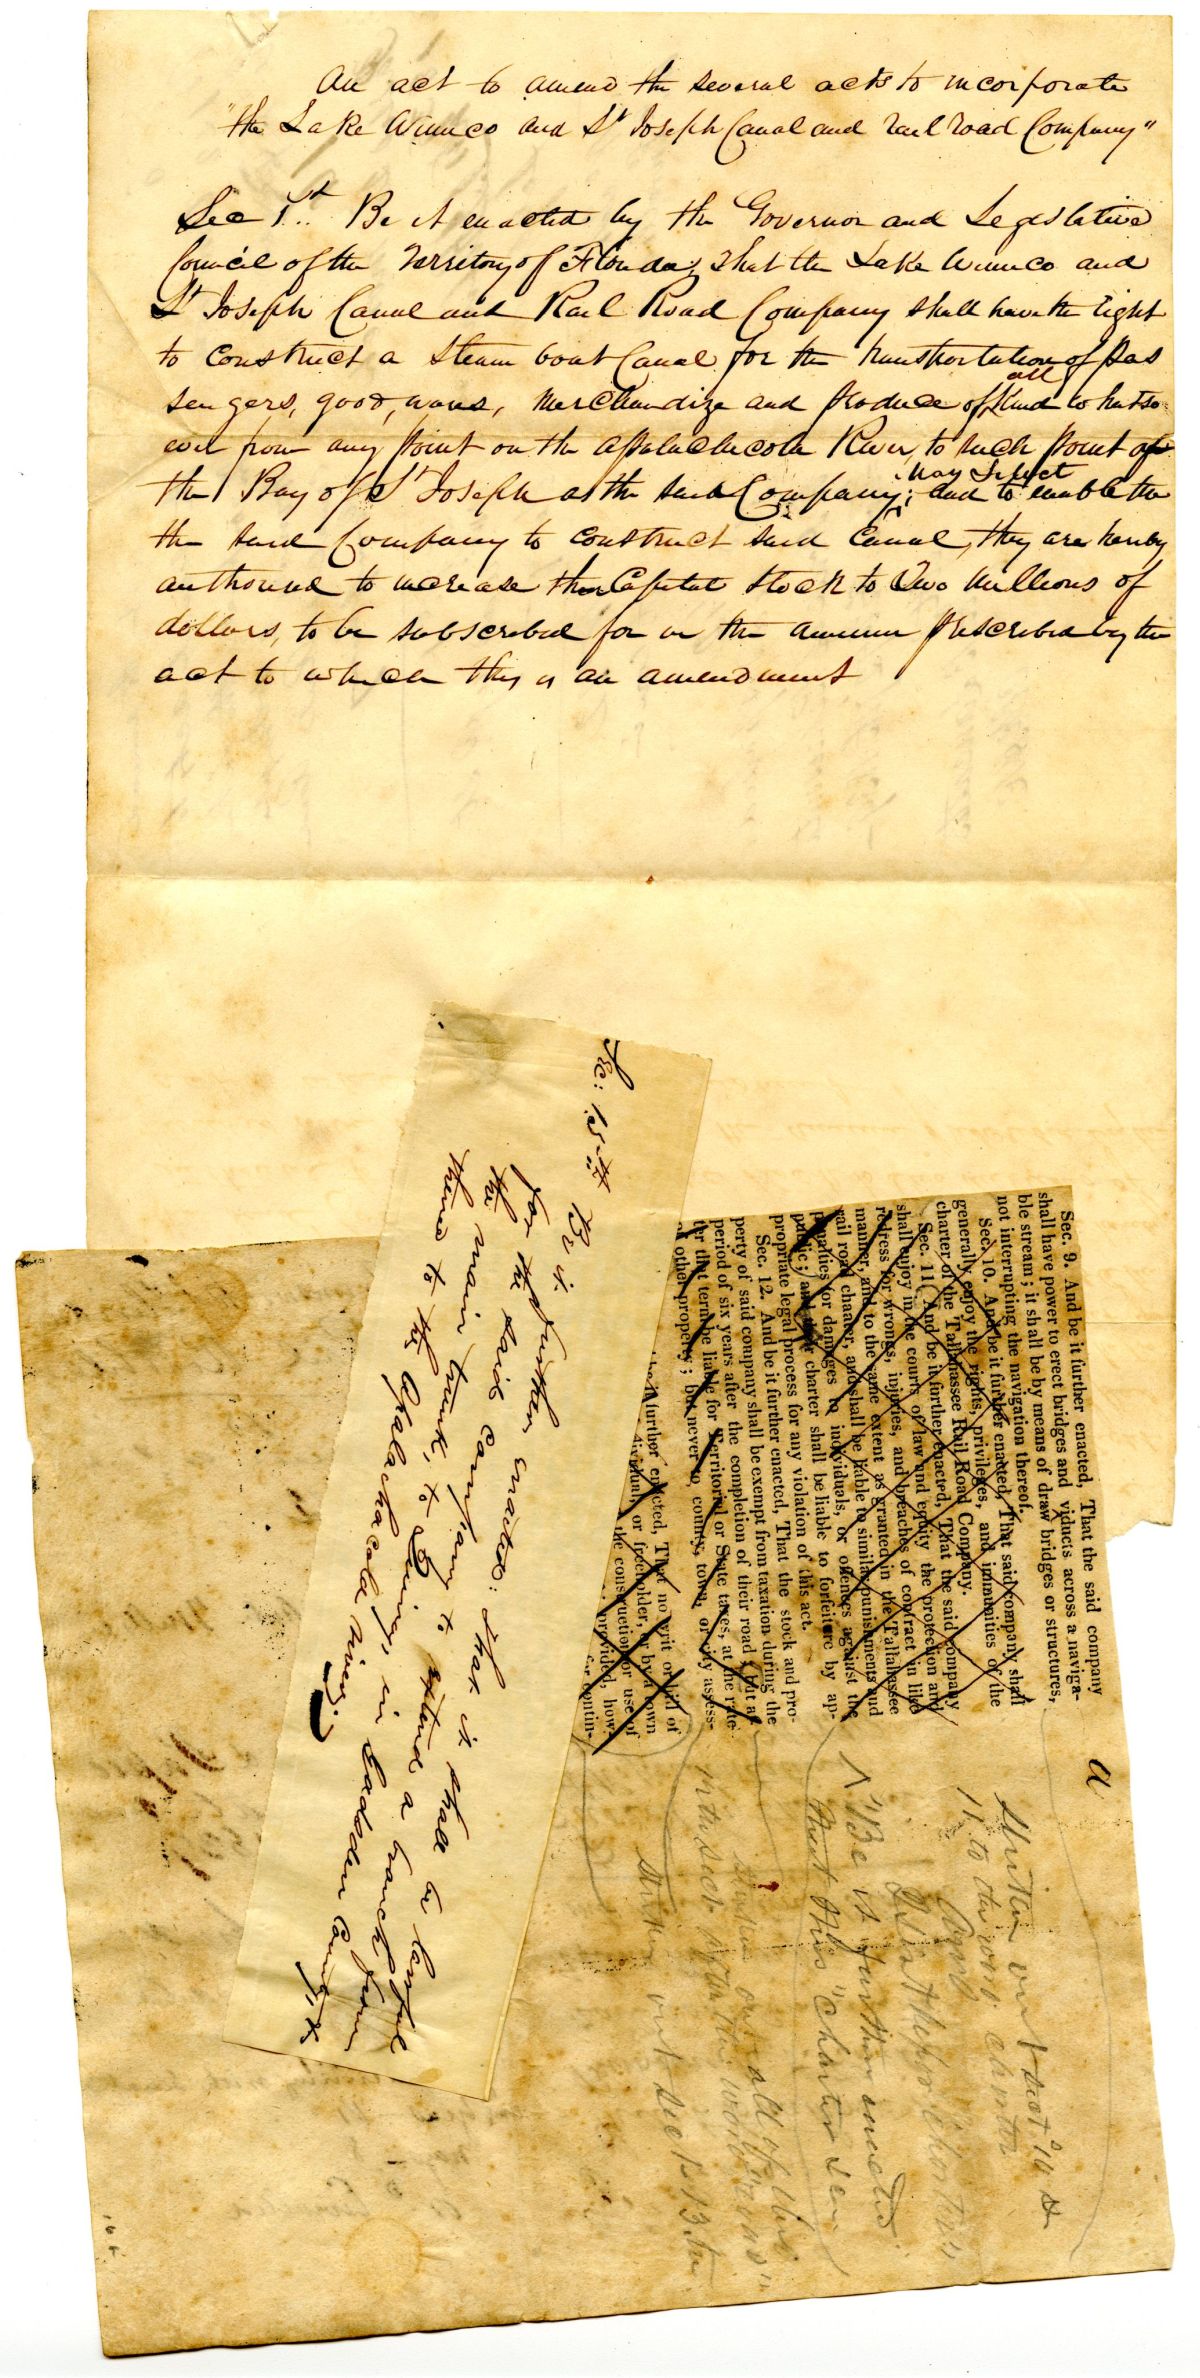 An act to amend the several acts to incorporate
"the Lake Wimico and St Joseph Canal and rail road Company"
Sec 1st. Be it enacted by the Governor and Legislative
Council of the Territory of Florida, That the Lake Wimico and
St Joseph Canal and Rail Road Company shall have the right
to construct a steam boat Canal for the transportation of pas
sengers, good, wares, merchandize and produce of all Kind whatso
ever from any point on the Appalachicola River, to such point of
the Bay of St Joseph as the said Company may select; and to enable the
the said Company to construct said Canal, they are hereby
authorized to increase their Capital stock to two millions of
dollars, to be subscribed for in the manner prescribed by the
act to which this is an amendment
Sec: 15th Be it further enacted: that it shall be lawful
for the said company to extend a branch from
the main trunk, to Quincy, in Gadsden County, &
thence to the Apalachacola river;
Sec. 9. And be it further enacted, That the said company
shall have power to erect bridges and viducts across a naviga-
ble stream; it shall be by means of draw bridges or structures,
not interrupting the navigation thereof.
Sec. 10. And be it further enacted, That said company shall
generally enjoy the rights, privileges, and immunities of the
charter of the Tallahassee Rail Road Company.
Sec. 11. And be it further enacted, That the said company
shall enjoy in the courts of law and equity the protection and
redress for wrongs, injuries, and breaches of contract in like
manner, and to the same extent as granted in the Tallahassee
rail road charter, and shall be liable to similar punishments and
penalties for damages to individuals, or offences against the
public; and their charter shall be liable to forfeiture by ap-
propriate legal process for any violation of this act.
Sec. 12. And be it further enacted, That the stock and pro-
perty of said company shall be exempt from taxation during the
period of six years after the completion of their road, but af-
ter that term be liable for Territorial or State taxes, at the rate
of other property; but never to county, town, or city assess-
further enacted, That no writ or bill of
dividual, or freeholder, or by a town
the construction or use of
provided, how-
for contin-
a
Striken out sect 10 &
11 to the word charter
"Be it further enacted
that this charter
striken out all of
12th sect after the word
striken out sec 13th